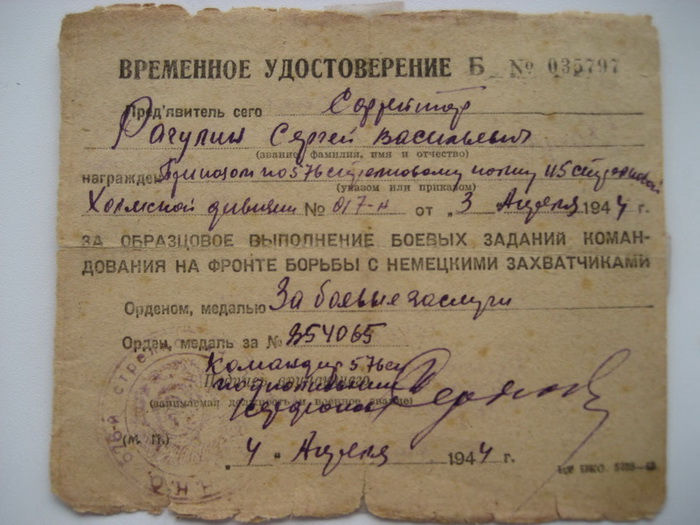 ВРЕМЕННОЕ УДОСТОВЕРЕНИЕ Б № 035797
Пред'явитель сего Ефрейтор
Рагулин Сергей Васильевич
(звание фамилия, имя и отчество)
награжден Приказом по 576 стрелковому полку 115 стрелковой
(указом или приказом)
Холмской дивизии № 017-н от „3 Апреля 1944 г.
ЗА ОБРАЗЦОВОЕ ВЫПОЛНЕНИЕ БОЕВЫХ ЗАДАНИЙ КОМАН-
ДОВАНИЯ НА ФРОНТЕ БОРЬБЫ С НЕМЕЦКИМИ ЗАХВАТЧИКАМИ
Орденом, медалью За боевые заслуги
Орден, медаль за № 854065
Командир 576 сп
подполковник
(занимаемая должность и военное звание)
(М. П.)
„4 " Апреля 1944 г.